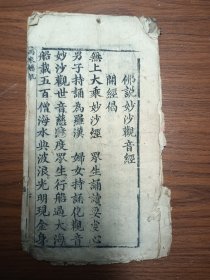 佛說妙沙觀音經
開經偈
無上大乘妙沙經　眾生誦讀要堅心
男子持誦為羅漢　婦女持誦化觀音
妙沙觀世音慈悲度眾生行船過大海
船載五百僧海水興波浪光明現金身